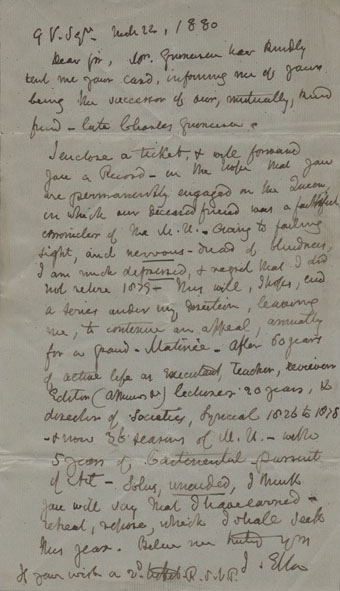 9 V. Sqre March 22, 1880
Dear Sir, Mrs. Gruneisen has kindly
sent me your card, informing me of yours
being the successor of our, mutually, kind
friend - late Charles Gruneisen.
I enclose a ticket, & will forward
you a Record - in the hope that you
are permanently engaged on the Queen,
in which our deceased friend was a faithful
chronicler of the M.U. - Owing to failing
sight, and nervous - dread of blindness,
I am much depressed, & regret that I did
not retire 1879 - This will, I hope, end
a series under my direction, leaving
me, to continue an appeal, annually
for a grand - Matinée - After 60 years
of active life as executant, teacher, reviewer
Editor (amateur) lecturer 20 years, &
director of Societies, Lyrical 1826 to 1878
- & now 36 seasons of M.U. - with
5 years of Continental pursuit
of Art - Solus, unaided, I think
you will say that I have earned -
retreat, repose, which I shall seek
this year. Believe me truly yrs
J. Ella
If you wish a 2d R.S.V.P.